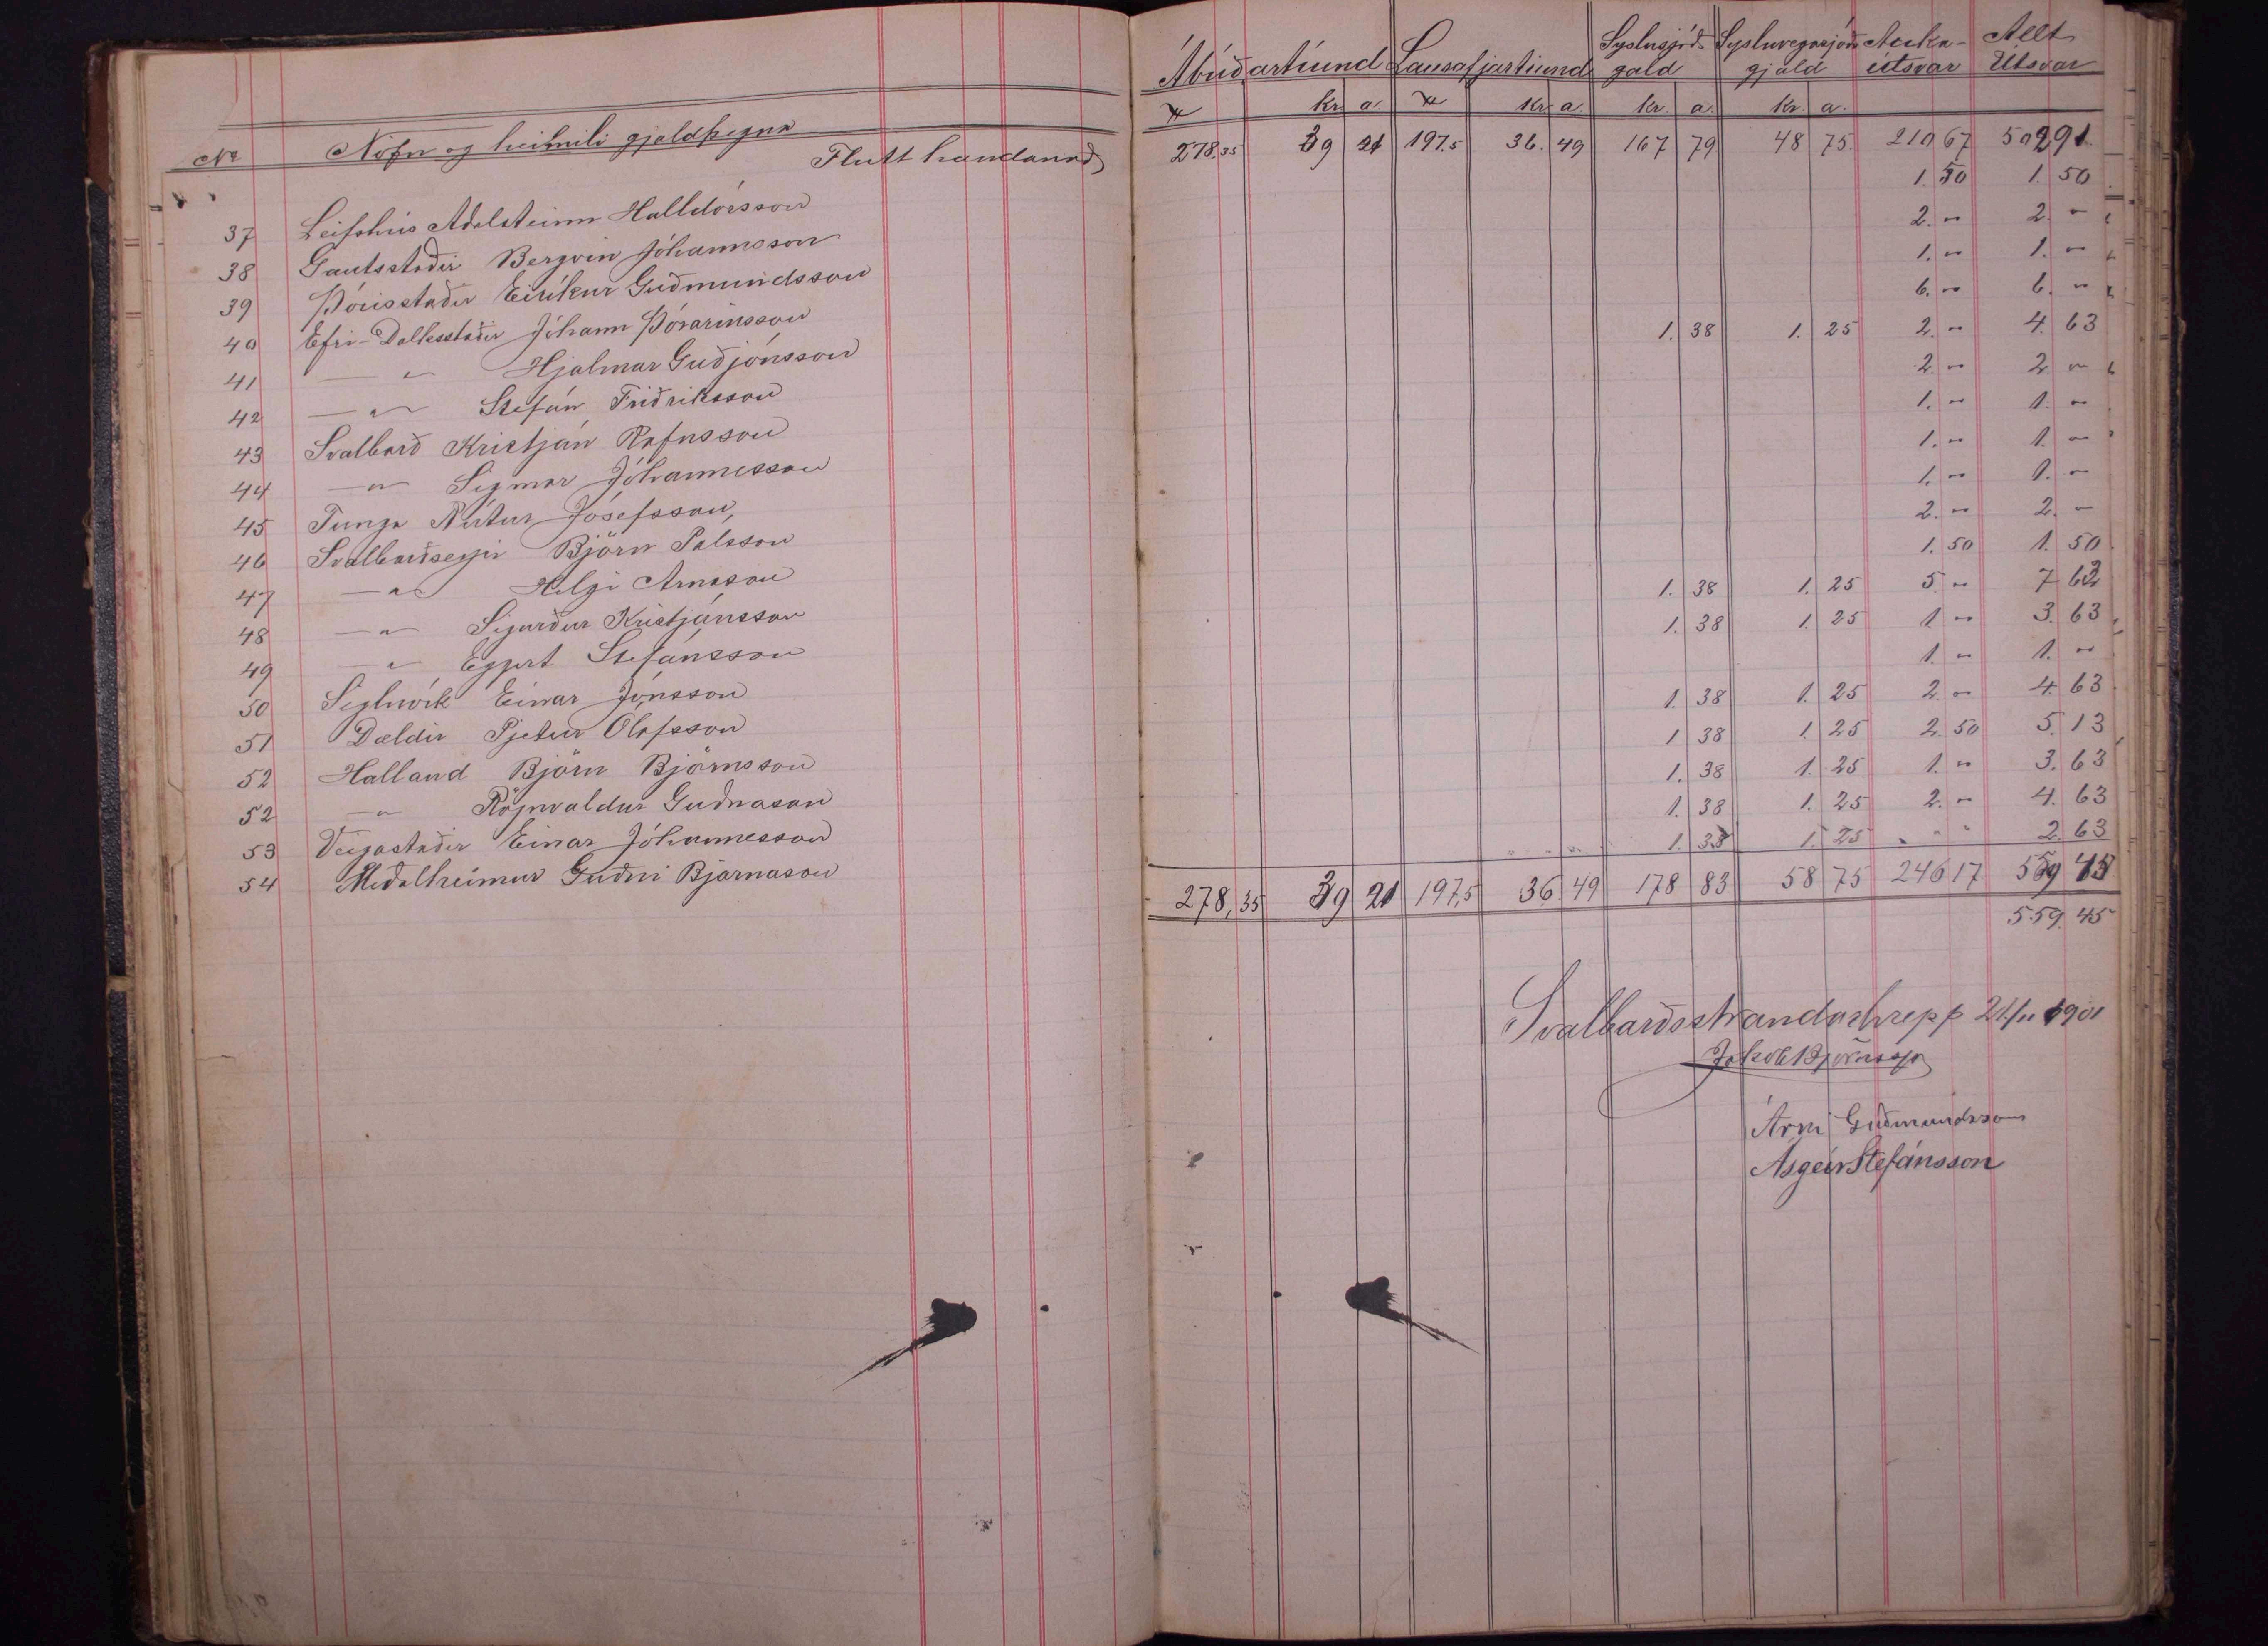 Nº Nöfn og heimili gjaldþegna
Flutt handanað
37 Leifshús Aðalsteinn Halldórsson
38 Gautsstaðir Bergvin Jóhannsson
39 Þórisstaðir Eiríkur Guðmundsson
40 Efri-Dalksstaðir Jóhann Þórarinsson
41 — " Hjalmar Guðjónsson
42 — " — Stefán Friðriksson
43 Svalbarð Kristján Rafnsson
44 — " — Sigmar Jóhannesson
45 Tunga Artur Jósefsson,
46 Svalbarðseyri Björn Pálsson
47 — " Helgi Arnason
48 — " Sigurður Kristjánsson
49 — " Eggert Stefánsson
50 Sigluvík Einar Jónsson
51 Dældir Pjetur Ólafsson
52 Halland Björn Björnsson
52 — " Rögnvaldur Guðnason
53 Veigastaðir Einar Jóhannesson
54 Meðalheimur Guðni Bjarnason
Ábúðartíund Lausafjartiund Syslusjóðs gald Sysluvegasjóðs gjald Auka- útsvar Allt Útsvar
kr. a. kr. a. kr. a. kr. a.
278,35 39 21 197,5 36. 49 167 79 48 75 210 67 502 91
1. 50 1. 50
2. " 2. "
1. " 1. "
6. " 6. "
1. 38 1. 25 2. " 4. 63
2. " 2. "
1. " 1. "
1. " 1. "
1. " 1. "
2. " 2. "
1. 50 1. 50
1. 38 1. 25 5. " 7 63
1. 38 1. 25 1 " 3. 63
1. " 1. "
1. 38 1. 25 2. " 4. 63
1 38 1. 25 2. 50 5. 13
1. 38 1. 25 1. " 3. 63
1. 38 1. 25 2. " 4. 63
1. 38 1. 25 " " 2. 63
278,35 39 21 197,5 36 49 178 83 58 75 246 17 559 45
559. 45
Svalbarðsstrandarhrepp 21/11 1901
Jakob Björnsson
Árni Guðmundsson
Ásgeir Stefánsson